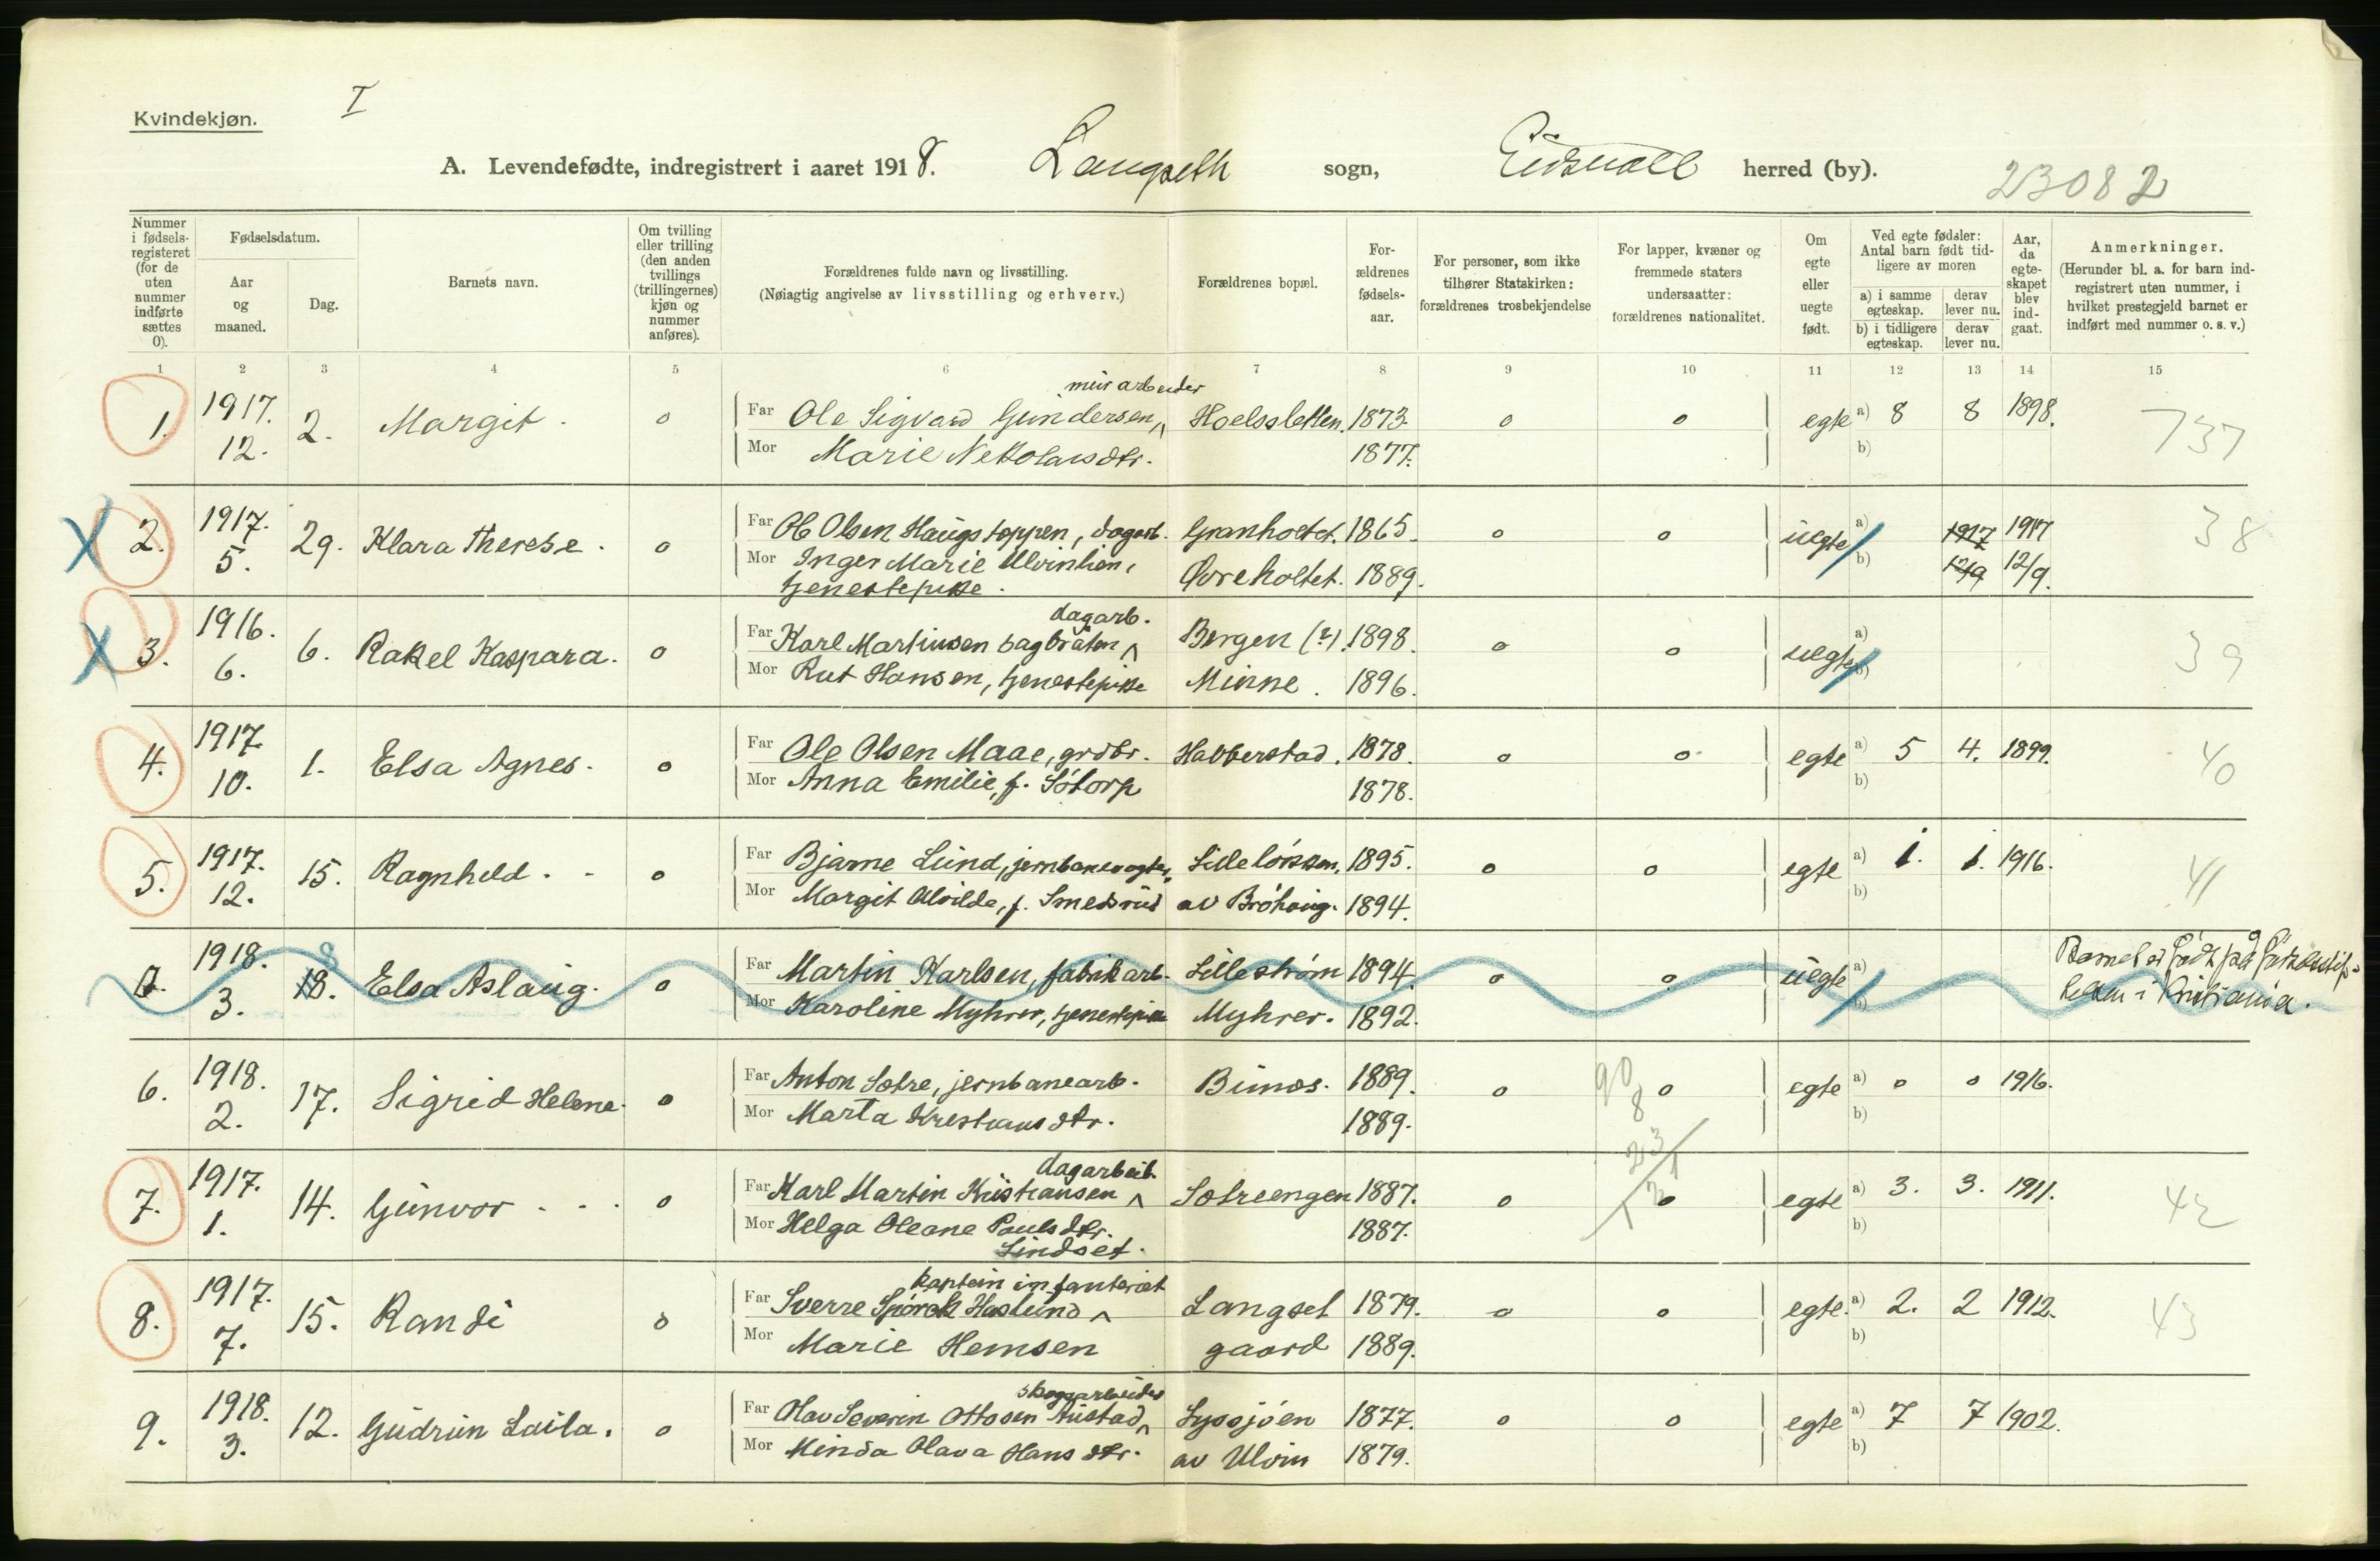 Kvindekjøn.
I
A. Levendefødte, indregistrert i aaret 1918. Langseth sogn, Eidsvoll herred (by).
23082
Nummer i fødsels-registeret (for de uten nummer indførte sættes 0).
Fødselsdatum.
Aar og maaned.
Dag.
Barnets navn.
Om tvilling eller trilling (den anden tvillings (trillingernes) kjøn og nummer anføres).
Forældrenes fulde navn og livsstilling.
(Nøiagtig angivelse av livsstilling og erhverv.)
Forældrenes bopæl.
For-ældrenes fødsels-aar.
For personer, som ikke tilhører Statskirken: forældrenes trosbekjendelse
For lapper, kvæner og fremmede staters undersaatter: forældrenes nationalitet.
Om egte eller uegte født.
Ved egte fødsler: Antal barn født tid-ligere av moren
a) i samme egteskap. derav lever nu.
b) i tidligere egteskap. derav lever nu.
Aar, da egte-skapet blev ind-gaat.
Anmerkninger.
(Herunder bl. a. for barn ind-registrert uten nummer, i hvilket prestegjeld barnet er indført med nummer o. s. v.)
1 2 3 4 5 6 7 8 9 10 11 12 13 14 15
murarbeider
1. 1917. 2. Margit. o Far Ole Sigvard Gundersen, Hoelssletten. 1873. o o egte a) 8 8 1898. 737
12. Mor Marie Nekolaisdtr. 1877. b)
2. 1917. 29. Klara Therese. o Far Ole Olsen Haugstoppen, dagarb. Granholtet. 1865. o o uegte a) 1917 1917 38
5. Mor Inger Marie Ulvinlien, Øvreholtet. 1889. b) 12/9 12/9.
tjenestepike.
dagarb.
3. 1916. 6. Rakel Kaspara. o Far Karl Martinsen Dagbråten Bergen (?). 1898. o o uegte a) 39
6. Mor Rut Hansen, tjenestepike Minne. 1896. b)
4. 1917. 1. Elsa Agnes. o Far Ole Olsen Maae, grdbr. Habberstad. 1878. o o egte a) 5 4. 1899. 40
10. Mor Anna Emilie, f. Sötorp 1878. b)
5. 1917. 15. Ragnheld. o Far Bjarne Lund, jernbanevogter, 1895. o o egte a) 1. 1. 1916. 41
12. Mor Margit Alvilde, f. Smedsrud av Bröhaug. 1894. b)
0. 1918. 18. 8 Elsa Aslaug. o Far Martin Karlsen, fabrikarb. Lilleström 1894. o o uegte a) Barnet er født på Fødselstif-
3. Mor Karoline Myhrer, tjenestepike Myhrer. 1892. b) i Kristiania.
6. 1918. 17. Sigrid Helene. o Far Anton Sætre, jernbanearb. Bunes. 1889. o 90 o egte a) o o 1916.
2. Mor Marta Krestiansdtr. 1889. 8 b)
23
dagarbeid.
7. 1917. 14. Gunvor o Far Karl Martin Kristiansen Sætreengen 1887. o o egte a) 3. 3. 1911. 42
1. Mor Helga Oleane Paulsdtr. 1887. b)
Lindset.
kaptein infanteriet
8. 1917. 15. Randi o Far Sverre Haslund Langset 1879. o o egte. a) 2. 2 1912. 43
7. Mor Marie Hemsen gaard 1889. b)
skogsarbeider
9. 1918. 12. Gudrun Laila. o Far Olav Severin Ottosen Austad Lyssjöen 1877. o o egte a) 7 7 1902.
3. Mor Minda Olava Hansdtr. av Ulvin 1879. b)